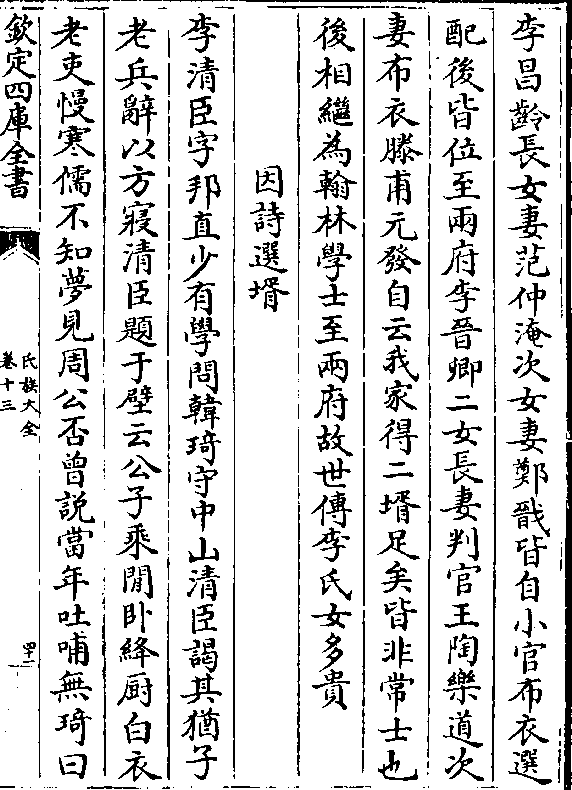 李昌齡長女妻范仲淹次女妻鄭戩皆自小官布衣選
配後皆位至兩府李晉卿二女長妻判官王陶樂道次
妻布衣滕甫元發自云我家得二壻足矣皆非常士也
後相繼為翰林學士至兩府故世傳李氏女多貴
因詩選壻
李清臣字邦直少有學問韓琦守中山清臣謁其猶子
老兵辭以方寢清臣題于壁云公子乘閒卧絳厨白衣
老吏慢寒儒不知夢見周公否曾説當年吐哺無琦曰
欽定四庫全書
氏族大全
卷十三
四二